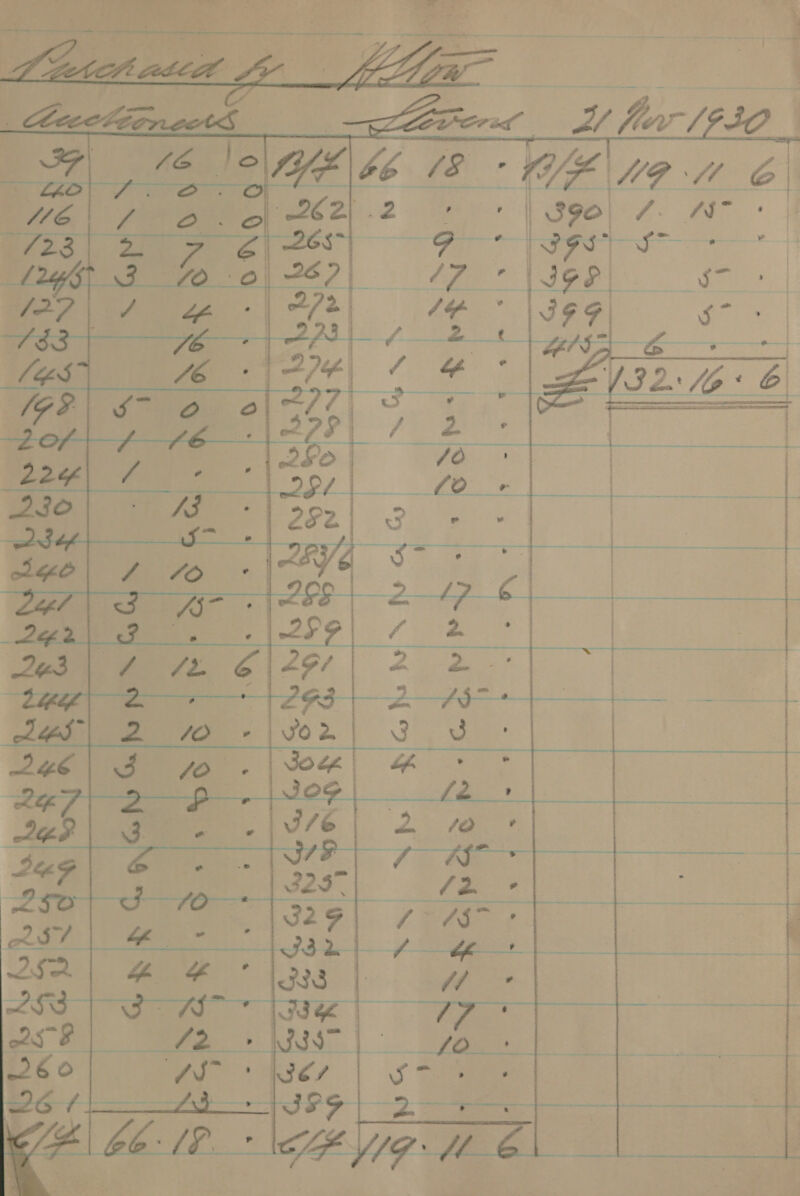 Purchased by HStow
Auctioneers Stevens 21 Nov 1930
39 16 0
40 1 . 0 . 0
116 1 0 . 0
123 2 7 6
124/5 3 10 . 0
127 1 4 .
133 16 .
145 16 .
198 5 0 0
201 1 16 .
224 1 . .
230 . 13 .
234 5 .
240 1 10 .
241 3 15 .
242 3 . .
243 1 12 6
244 2 . .
245 2 10 .
246 3 10 .
247 2 8 .
248 3 . .
249 6 . .
250 3 10 .
251 4 . .
252 4 4 .
253 3 . 15 .
258 12 .
260 15 .
261 13 .
C/F 66 . 18 . .
B/F 66 18 .
262 2 . .
265 9 .
267 17 .
272 14 .
273 1 2 .
274 1 4 .
277 3 . .
278 1 2 .
280 10 .
281 10 .
282 3 . .
283/6 5 . .
288 2 17 6
289 1 2 .
291 2 2 .
293 2 15 .
302 3 3 .
304 4 . .
309 12 .
316 2 10 .
318 1 15 .
325 12 .
329 1 15 .
332 1 4 .
333 11 .
334 17 .
335 10 .
361 5 . .
389 2 . .
C/F 119 . 11 6
B/F 119 . 11 6
390 1 . 15 .
395 5 . .
398 5 .
399 5 .
415 6 . .
£ 132 . 16 . 6